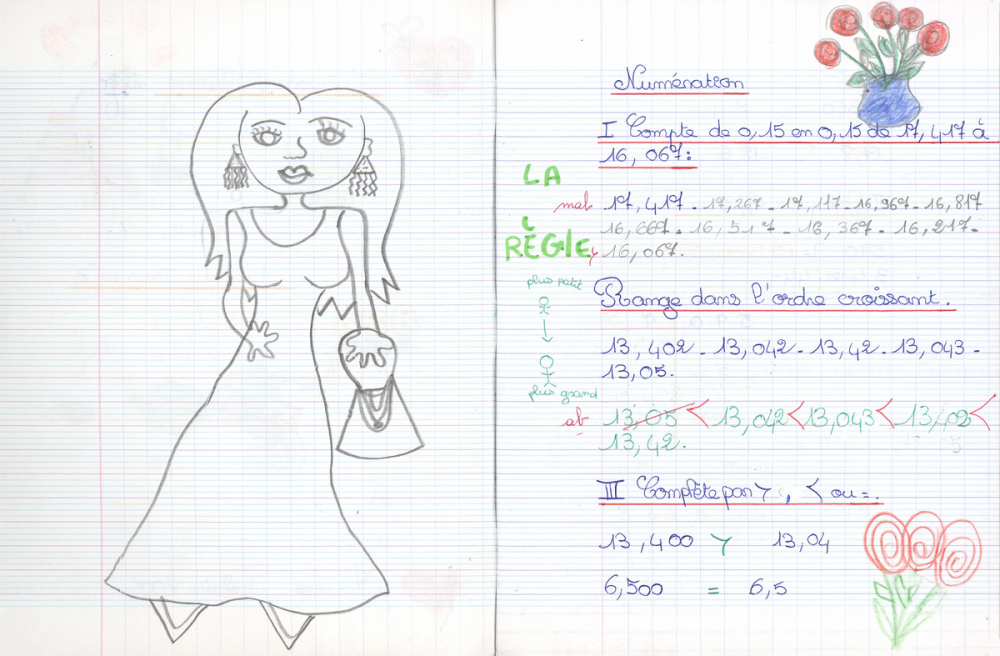 Numération
I Compte de 0,15 en 0,15 de 17,417 à
16,067:
LA
RÈGLE
mal 17,417 - 17,267 - 17,117 - 16,967 - 16,817
16,667 - 16,517 - 16,367 - 16,217 -
16,067.
plus petit
plus grand
Range dans l'ordre croissant.
13,402 - 13,042 - 13,42 - 13,043 -
13,05.
ab 13,05 < 13,042 < 13,043 < 13,402 <
13,42.
III Complète par >, < ou =.
13,400 > 13,04
6,500 = 6,5